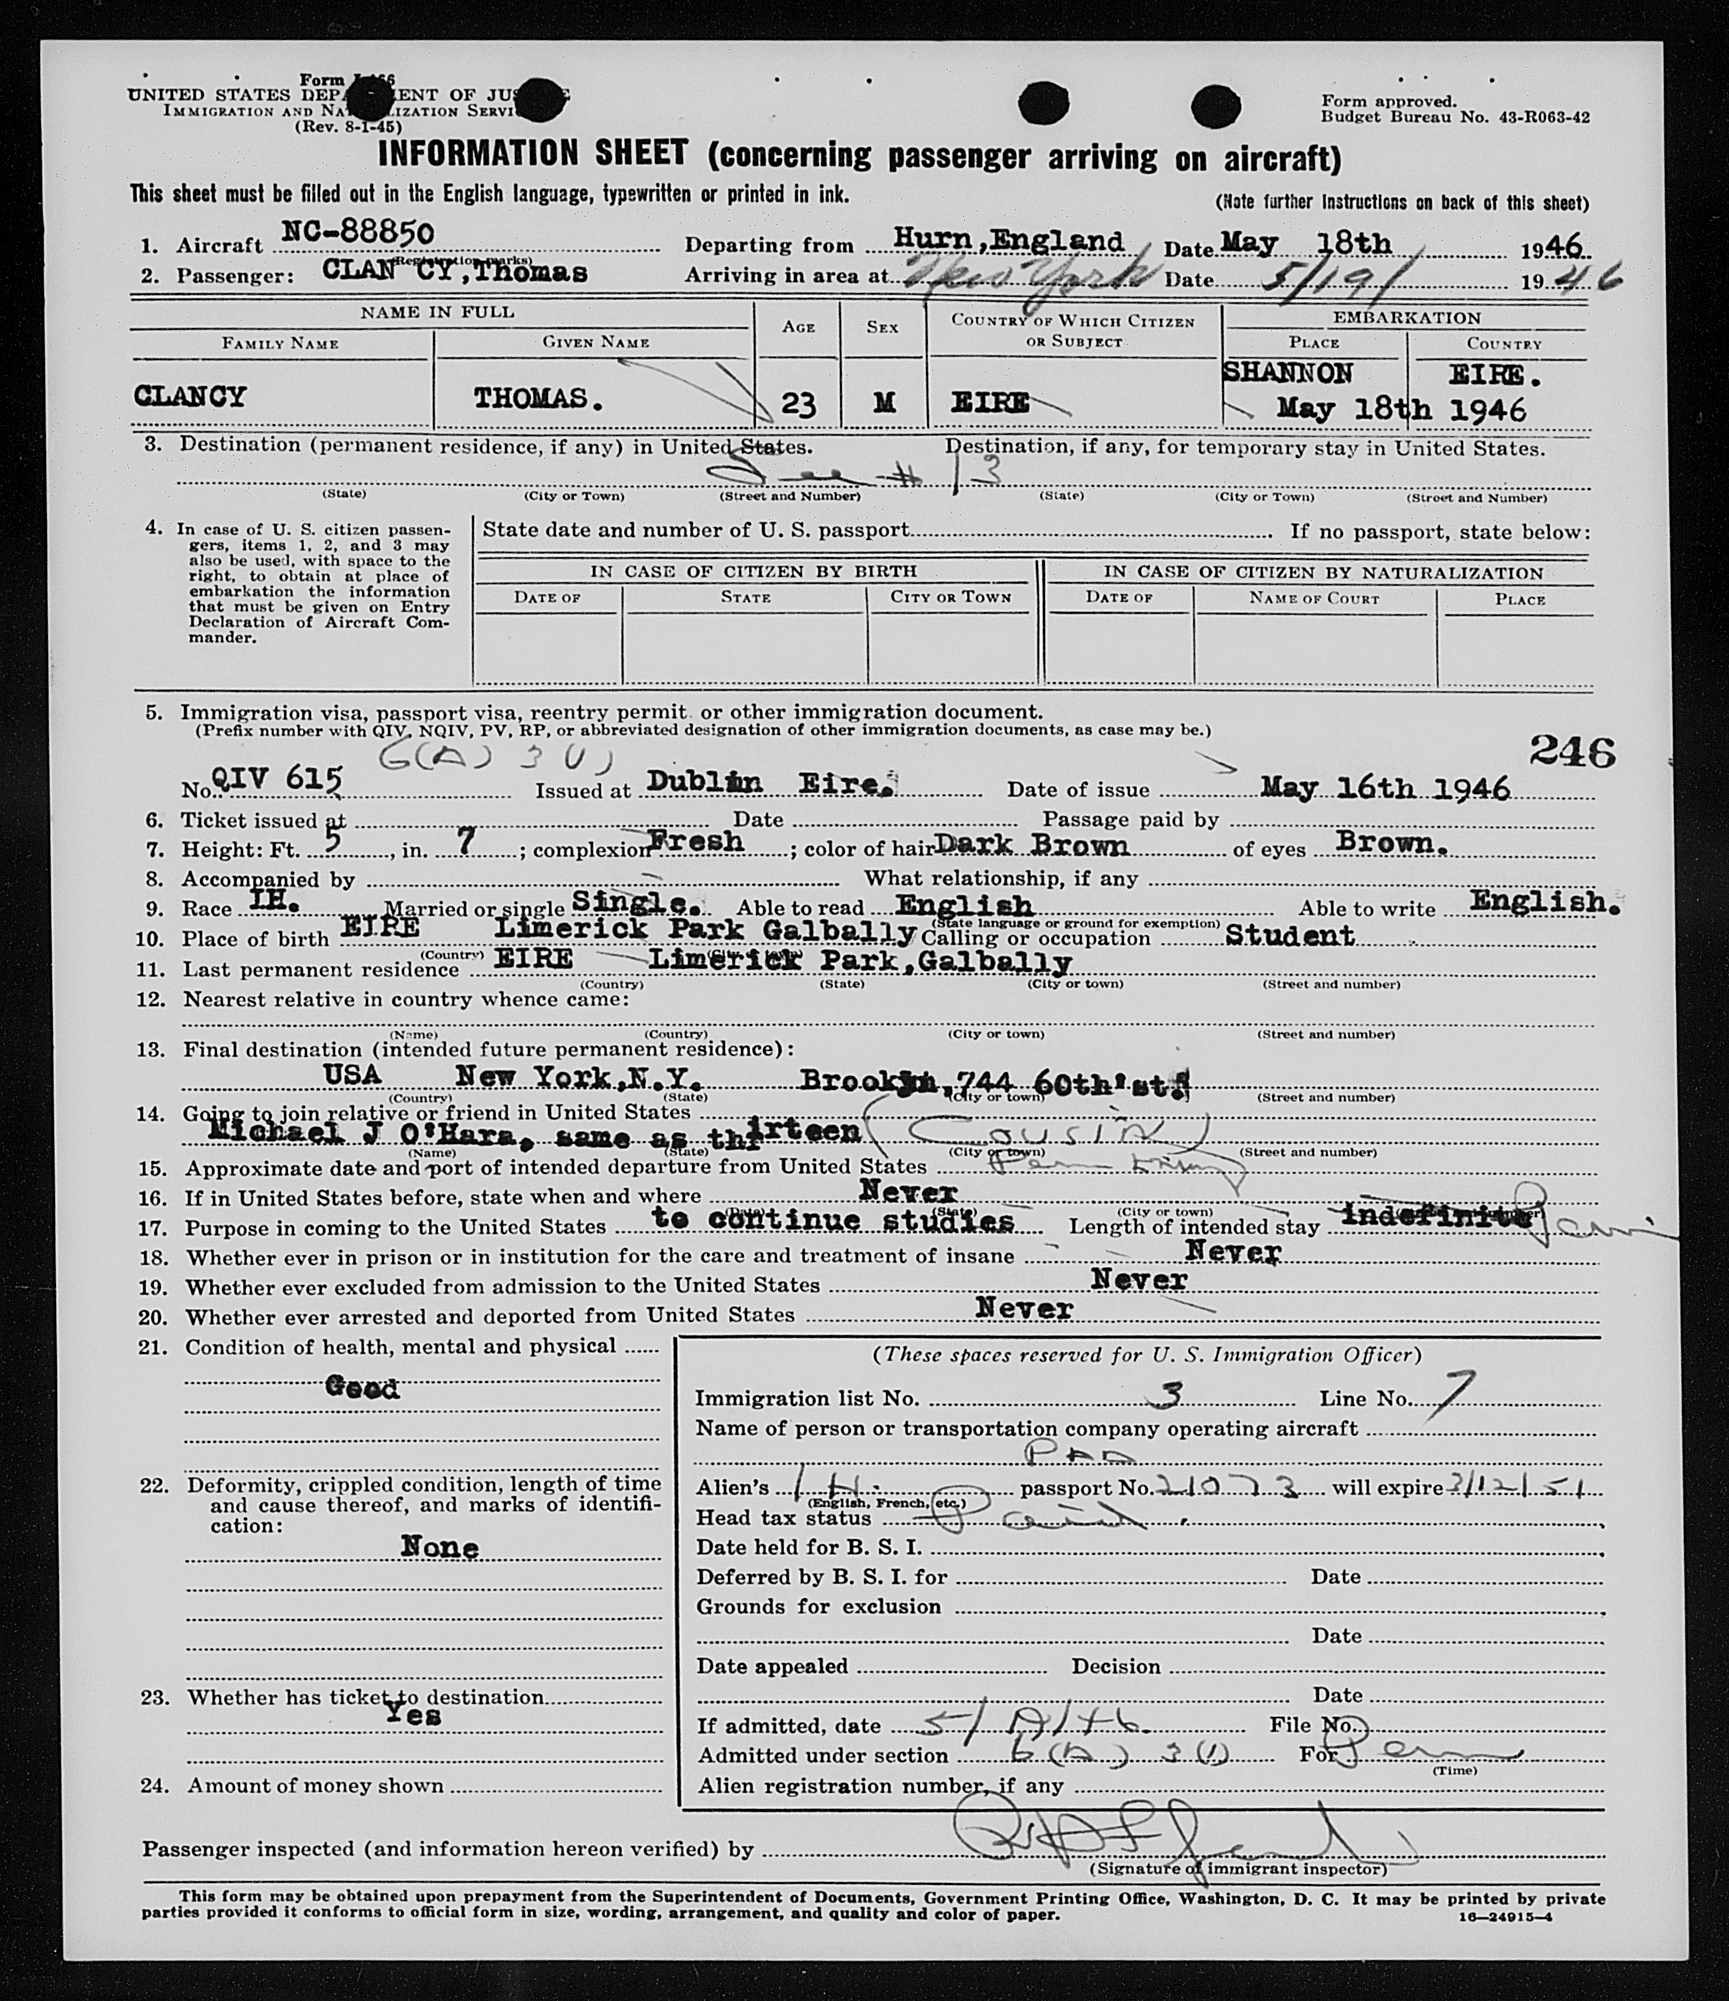 Form I-466
UNITED STATES DEPARTMENT OF JUSTICE
IMMIGRATION AND NATURALIZATION SERVICE
(Rev. 8-1-45)
Form approved.
Budget Bureau No. 43-R063-42
INFORMATION SHEET (concerning passenger arriving on aircraft)
This sheet must be filled out in the English language, typewritten or printed in ink.
(Note further instructions on back of this sheet)
1. Aircraft NC-88850 Departing from Hurn,England Date May 18th 1946
(Registration marks)
2. Passenger: CLAN CY,Thomas Arriving in area at New York Date 5/19/ 1946
NAME IN FULL AGE SEX COUNTRY OF WHICH CITIZEN OR SUBJECT EMBARKATION
FAMILY NAME GIVEN NAME PLACE COUNTRY
SHANNON EIRE.
CLANCY THOMAS. 23 M EIRE May 18th 1946
3. Destination (permanent residence, if any) in United States. Destination, if any, for temporary stay in United States.
See # 13
(State) (City or Town) (Street and Number) (State) (City or Town) (Street and Number)
4. In case of U. S. citizen passen-
gers, items 1, 2, and 3 may
also be used, with space to the
right, to obtain at place of
embarkation the information
that must be given on Entry
Declaration of Aircraft Com-
mander.
State date and number of U. S. passport If no passport, state below:
IN CASE OF CITIZEN BY BIRTH IN CASE OF CITIZEN BY NATURALIZATION
DATE OF STATE CITY OR TOWN DATE OF NAME OF COURT PLACE
5. Immigration visa, passport visa, reentry permit or other immigration document.
(Prefix number with QIV, NQIV, PV, RP, or abbreviated designation of other immigration documents, as case may be.)
246
6(A) 3 (1)
No. QIV 615 Issued at Dublin Eire. Date of issue May 16th 1946
6. Ticket issued at Date Passage paid by
7. Height: Ft. 5, in. 7; complexion Fresh; color of hair Dark Brown of eyes Brown.
8. Accompanied by What relationship, if any
9. Race IH. Married or single Single. Able to read English Able to write English.
(State language or ground for exemption)
10. Place of birth EIRE Limerick Park Galbally Calling or occupation Student
(Country) (City or town)
11. Last permanent residence EIRE Limerick Park,Galbally
(Country) (State) (City or town) (Street and number)
12. Nearest relative in country whence came:
(Name) (Country) (City or town) (Street and number)
13. Final destination (intended future permanent residence):
USA New York,N.Y. Brooklyn,744 60th'st.
(Country) (State) (City or town) (Street and number)
14. Going to join relative or friend in United States
Michael J O'Hara, same as thirteen (Cousin)
(Name) (State) (City or town) (Street and number)
15. Approximate date and port of intended departure from United States Perm
16. If in United States before, state when and where Never
(Date) (State) (City or town) (Street and number)
17. Purpose in coming to the United States to continue studies Length of intended stay indefinite Perm
18. Whether ever in prison or in institution for the care and treatment of insane Never
19. Whether ever excluded from admission to the United States Never
20. Whether ever arrested and deported from United States Never
21. Condition of health, mental and physical
Good
22. Deformity, crippled condition, length of time
and cause thereof, and marks of identifi-
cation:
None
23. Whether has ticket to destination
Yes
24. Amount of money shown
(These spaces reserved for U. S. Immigration Officer)
Immigration list No. 3 Line No. 7
Name of person or transportation company operating aircraft
PAA
Alien's IH. passport No. 21073 will expire 3/12/51
(English, French, etc.)
Head tax status Paid.
Date held for B. S. I.
Deferred by B. S. I. for Date
Grounds for exclusion
Date
Date appealed Decision
Date
If admitted, date 5/19/46 File No.
Admitted under section 6(A) 3(1) For Perm
(Time)
Alien registration number, if any
Passenger inspected (and information hereon verified) by
(Signature of immigrant inspector)
This form may be obtained upon prepayment from the Superintendent of Documents, Government Printing Office, Washington, D. C. It may be printed by private
parties provided it conforms to official form in size, wording, arrangement, and quality and color of paper.
16—24915-4